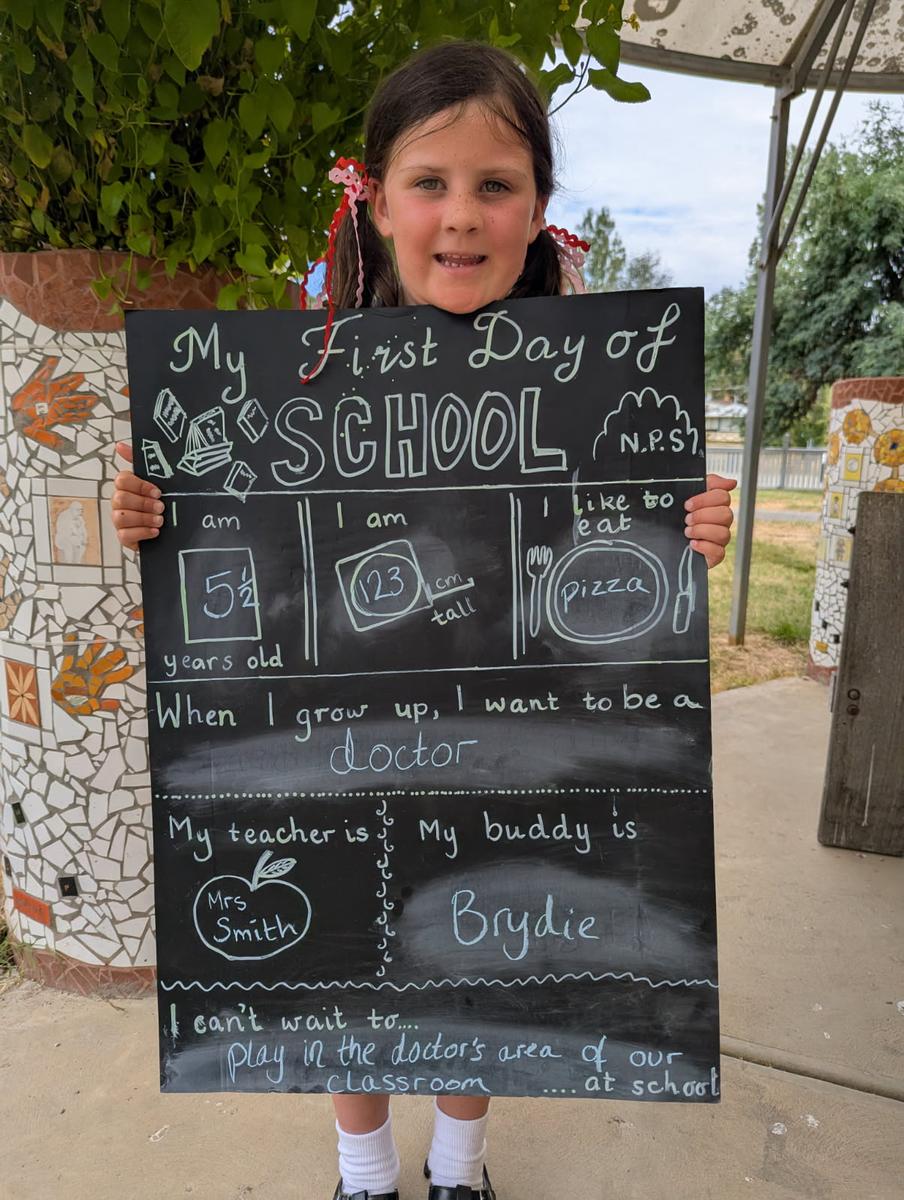 My First Day of
SCHOOL
N.P.S
I am
5½
years old
I am
123
cm
tall
I like to
eat
pizza
When I grow up, I want to be a
doctor
My teacher is
Mrs
Smith
My buddy is
Brydie
I can't wait to....
play in the doctor's area of our
classroom .... at school